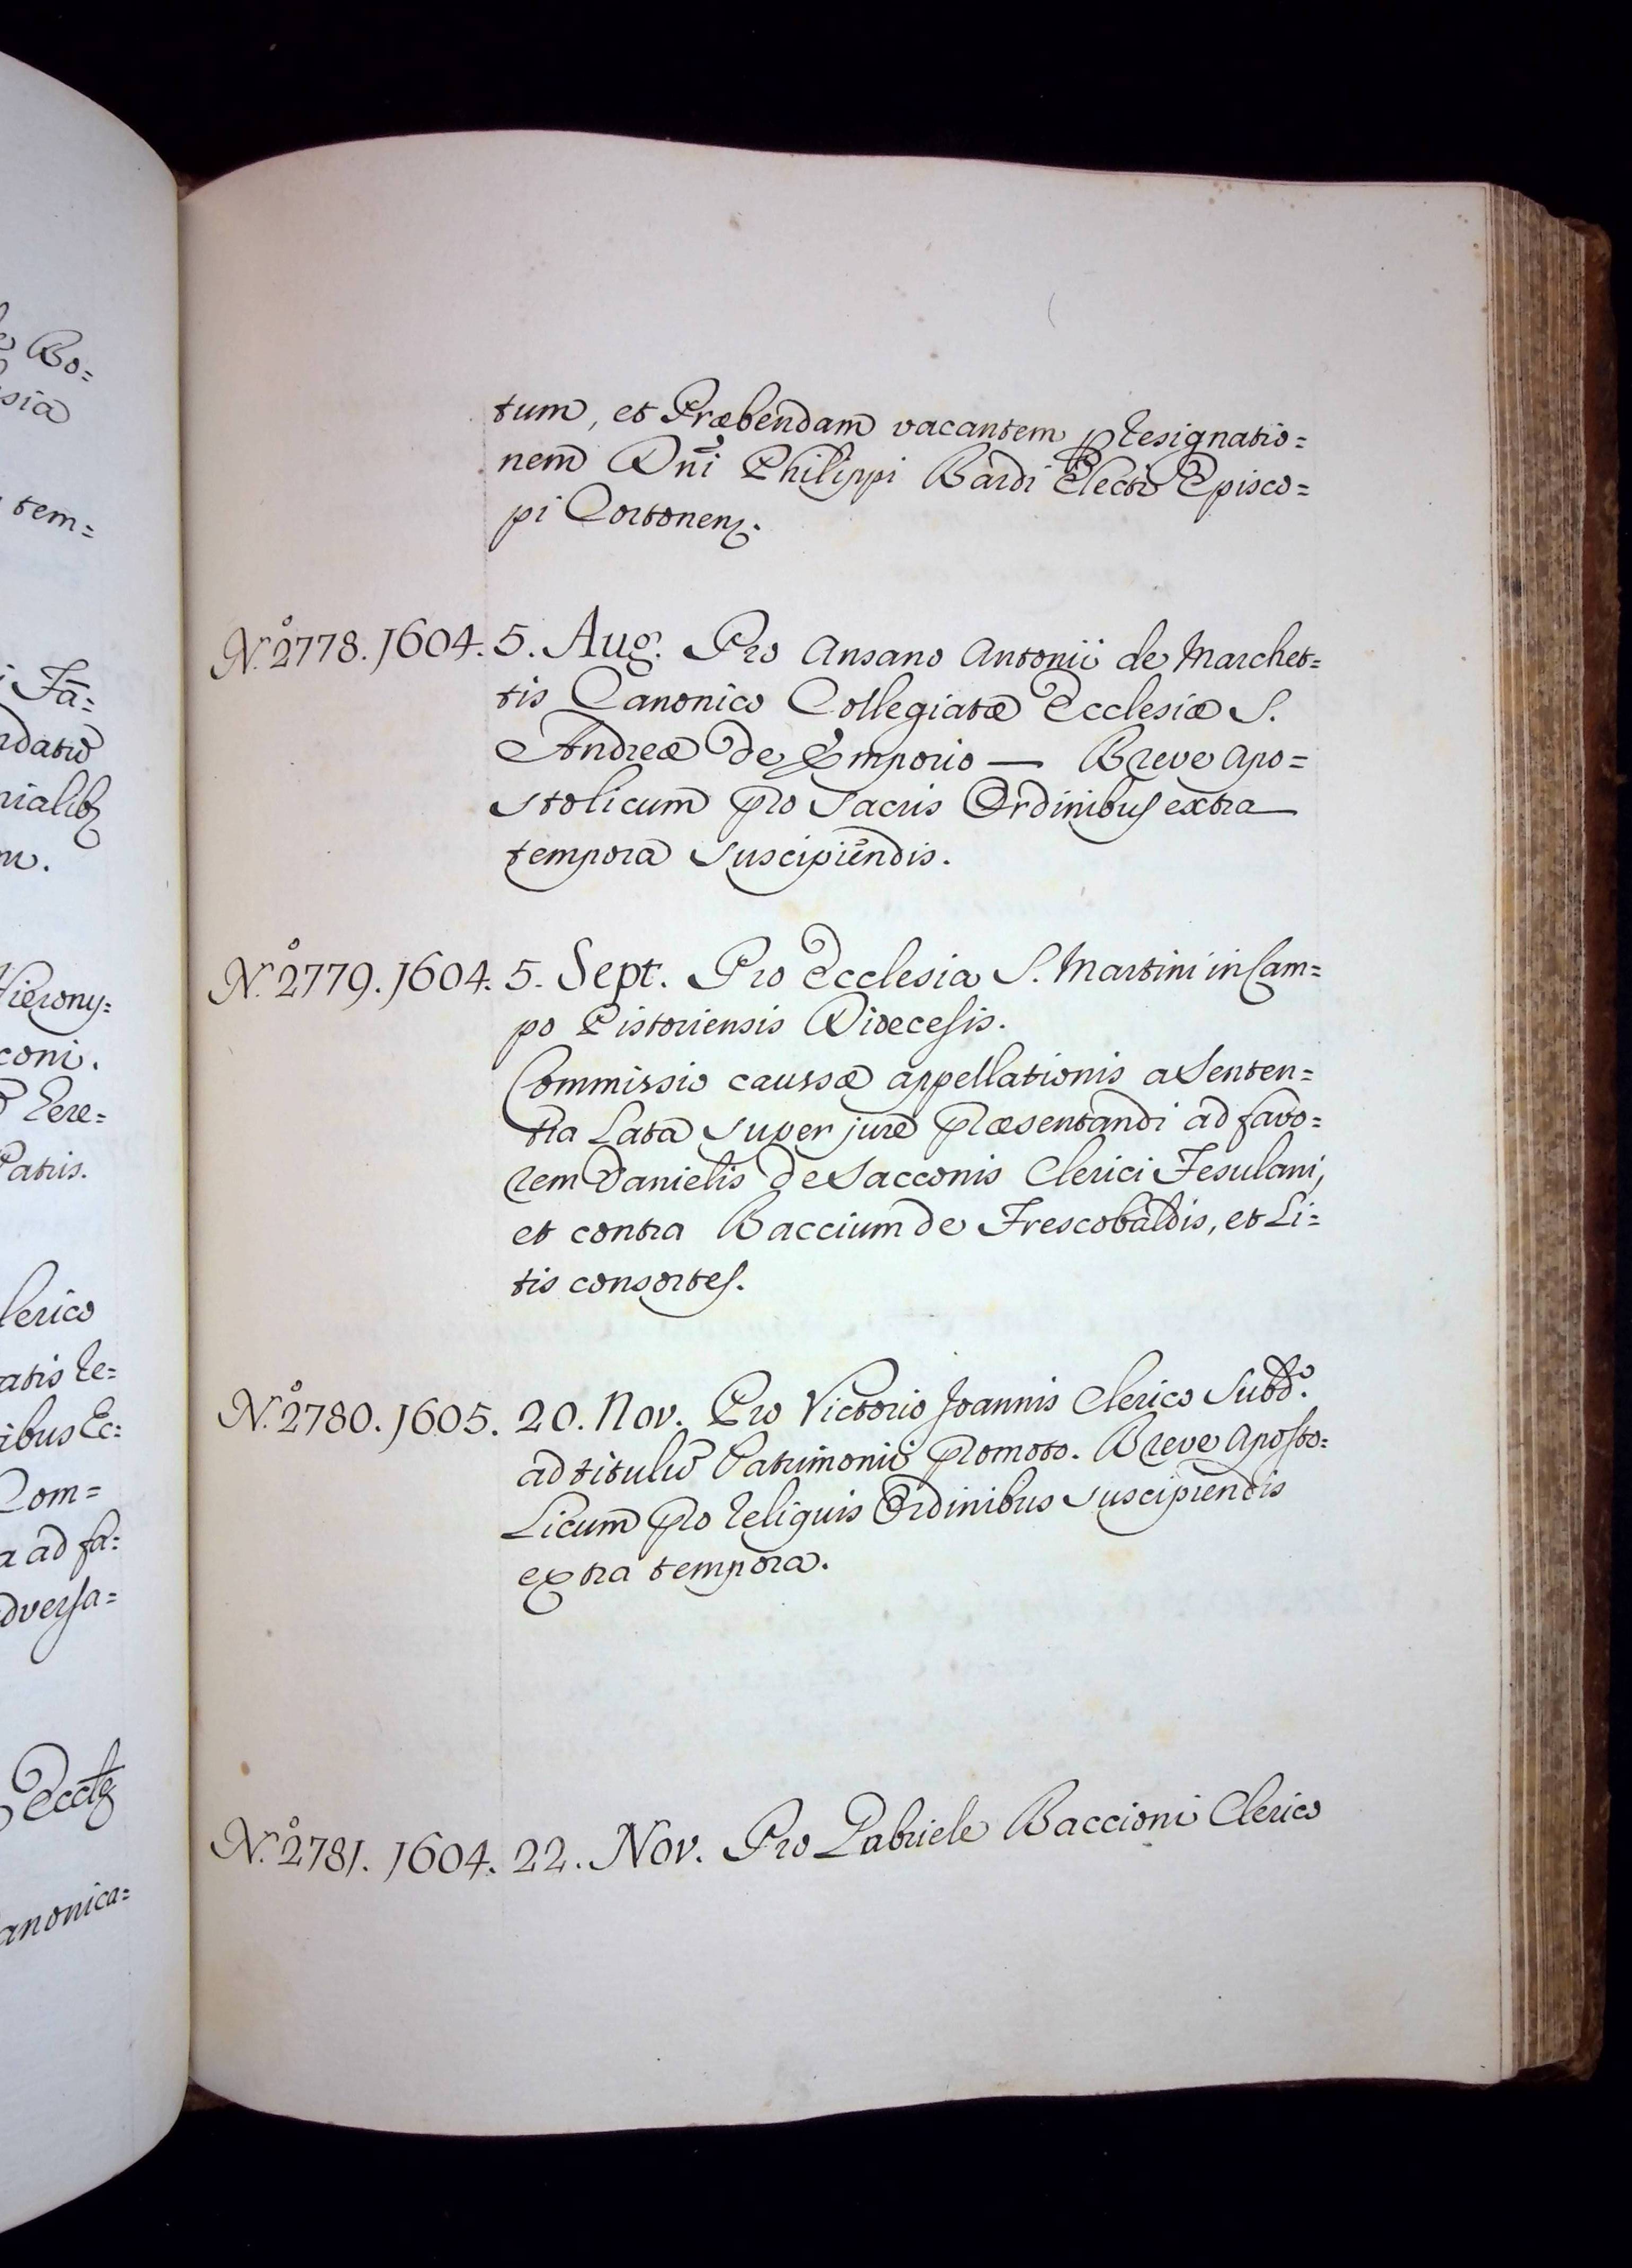 Bo=
sia
tem=
i Fa=
ndatū
nialibꝫ
m.
Hierony=
coni.
Tere=
Patris.
lerico
atis Re=
ibus Ec=
Com=
a ad fa=
dversa=
anonica=
tum, et Præbendam vacantem ꝑ resignatio=
nem Dñi Philippi Bardi Electi Episco=
pi Cortonenꝫ.
N.º 2778. 1604. 5. Aug. Pro Ansano Antonii de Marchet=
tis Canonico Collegiatæ Ecclesiæ S.
Andreæ de Emporio — Breve Apo=
stolicum pro Sacris Ordinibus extra
tempora suscipiendis.
N.º 2779. 1604. 5. Sept. Pro Ecclesia S. Martini in Cam=
po Pistoriensis Diœcesis.
Commissio caussæ appellationis a senten=
tia Lata super jure præsentandi ad favo=
rem Danielis de Sacconis Clerici Fesulani,
et contra Baccium de Frescobaldis, et Li=
tis consortes.
N.º 2780. 1605. 20. Nov. Pro Victorio Joannis Clerico Subd.º
ad titulū Patrimonii promoto. Breve Aposto=
Licum pro reliquis Ordinibus suscipiendis
extra tempora.
N.º 2781. 1604. 22. Nov. Pro Gabriele Baccioni Clerico